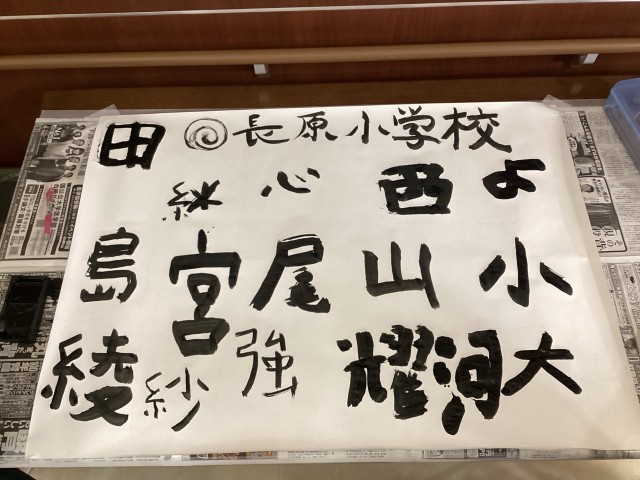 ◎長原小学校
田 心 西 よ
島 宮 尾 山 小
綾 紗 強 耀 河 大